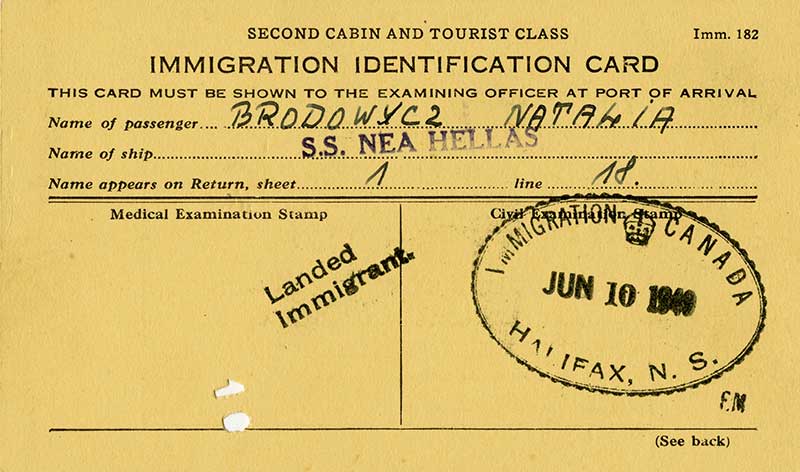 SECOND CABIN AND TOURIST CLASS Imm. 182
IMMIGRATION IDENTIFICATION CARD
THIS CARD MUST BE SHOWN TO THE EXAMINING OFFICER AT PORT OF ARRIVAL
Name of passenger.... BRODOWYCZ NATALIA
Name of ship S.S. NEA HELLAS
Name appears on Return, sheet 1 line 18.
Medical Examination Stamp
Civil Examination Stamp
Landed
Immigrant.
IMMIGRATION CANADA
JUN 10 1949
HALIFAX, N. S.
(See back)